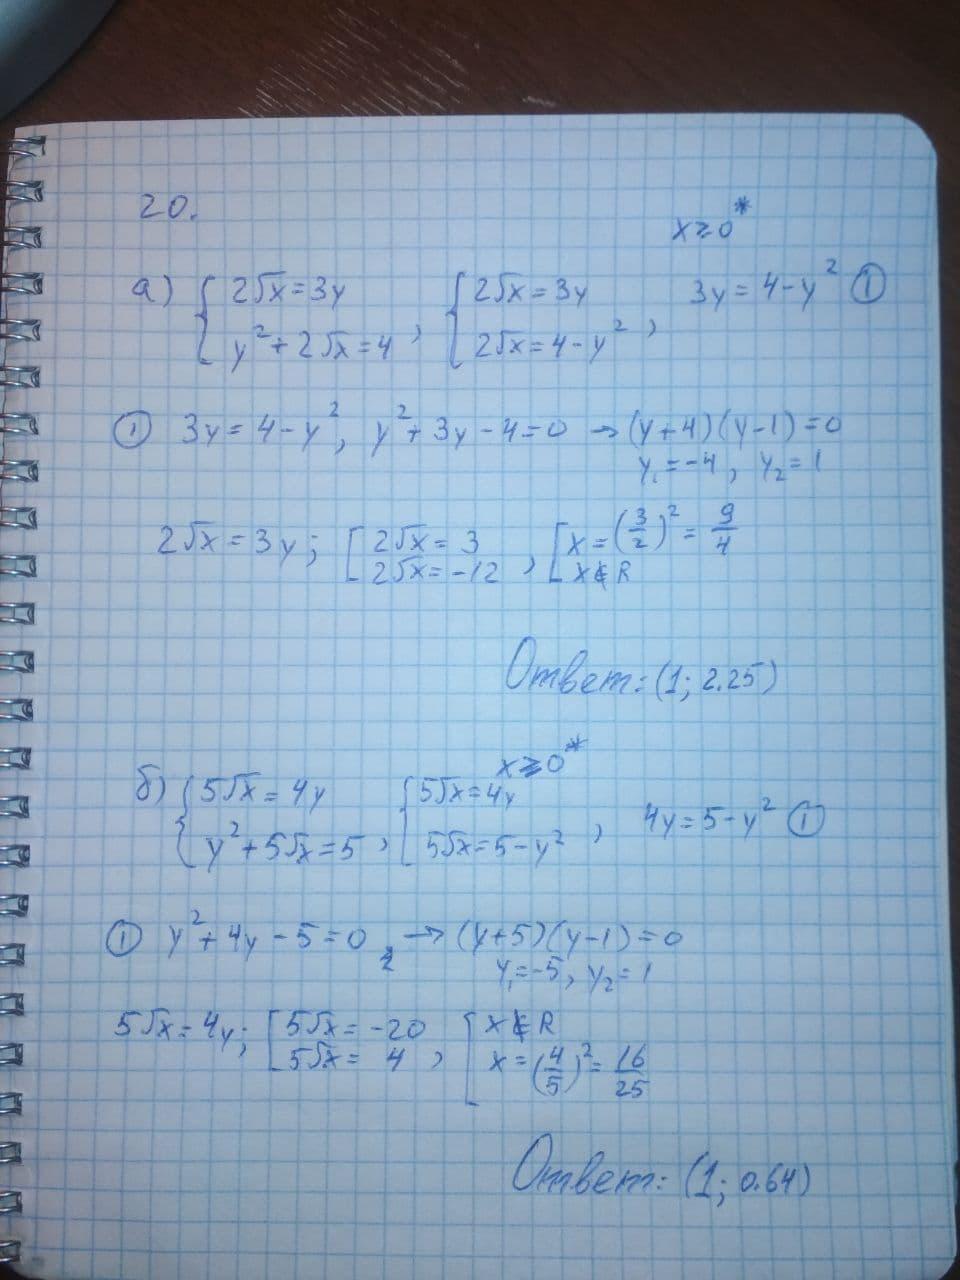 20.
x ≥ 0*
а) { 2√x = 3y ; y² + 2√x = 4 , { 2√x = 3y ; 2√x = 4 - y² , 3y = 4 - y² ①
① 3y = 4 - y², y² + 3y - 4 = 0 → (y+4)(y-1) = 0
y₁ = -4, y₂ = 1
2√x = 3y; [ 2√x = 3 ; 2√x = -12 , [ x = (3/2)² = 9/4 ; x ∉ R
Ответ: (1; 2.25)
x ≥ 0*
б) { 5√x = 4y ; y² + 5√x = 5 , { 5√x = 4y ; 5√x = 5 - y² , 4y = 5 - y² ①
① y² + 4y - 5 = 0, → (y+5)(y-1) = 0
y₁ = -5, y₂ = 1
5√x = 4y; [ 5√x = -20 ; 5√x = 4 , [ x ∉ R ; x = (4/5)² = 16/25
Ответ: (1; 0.64)